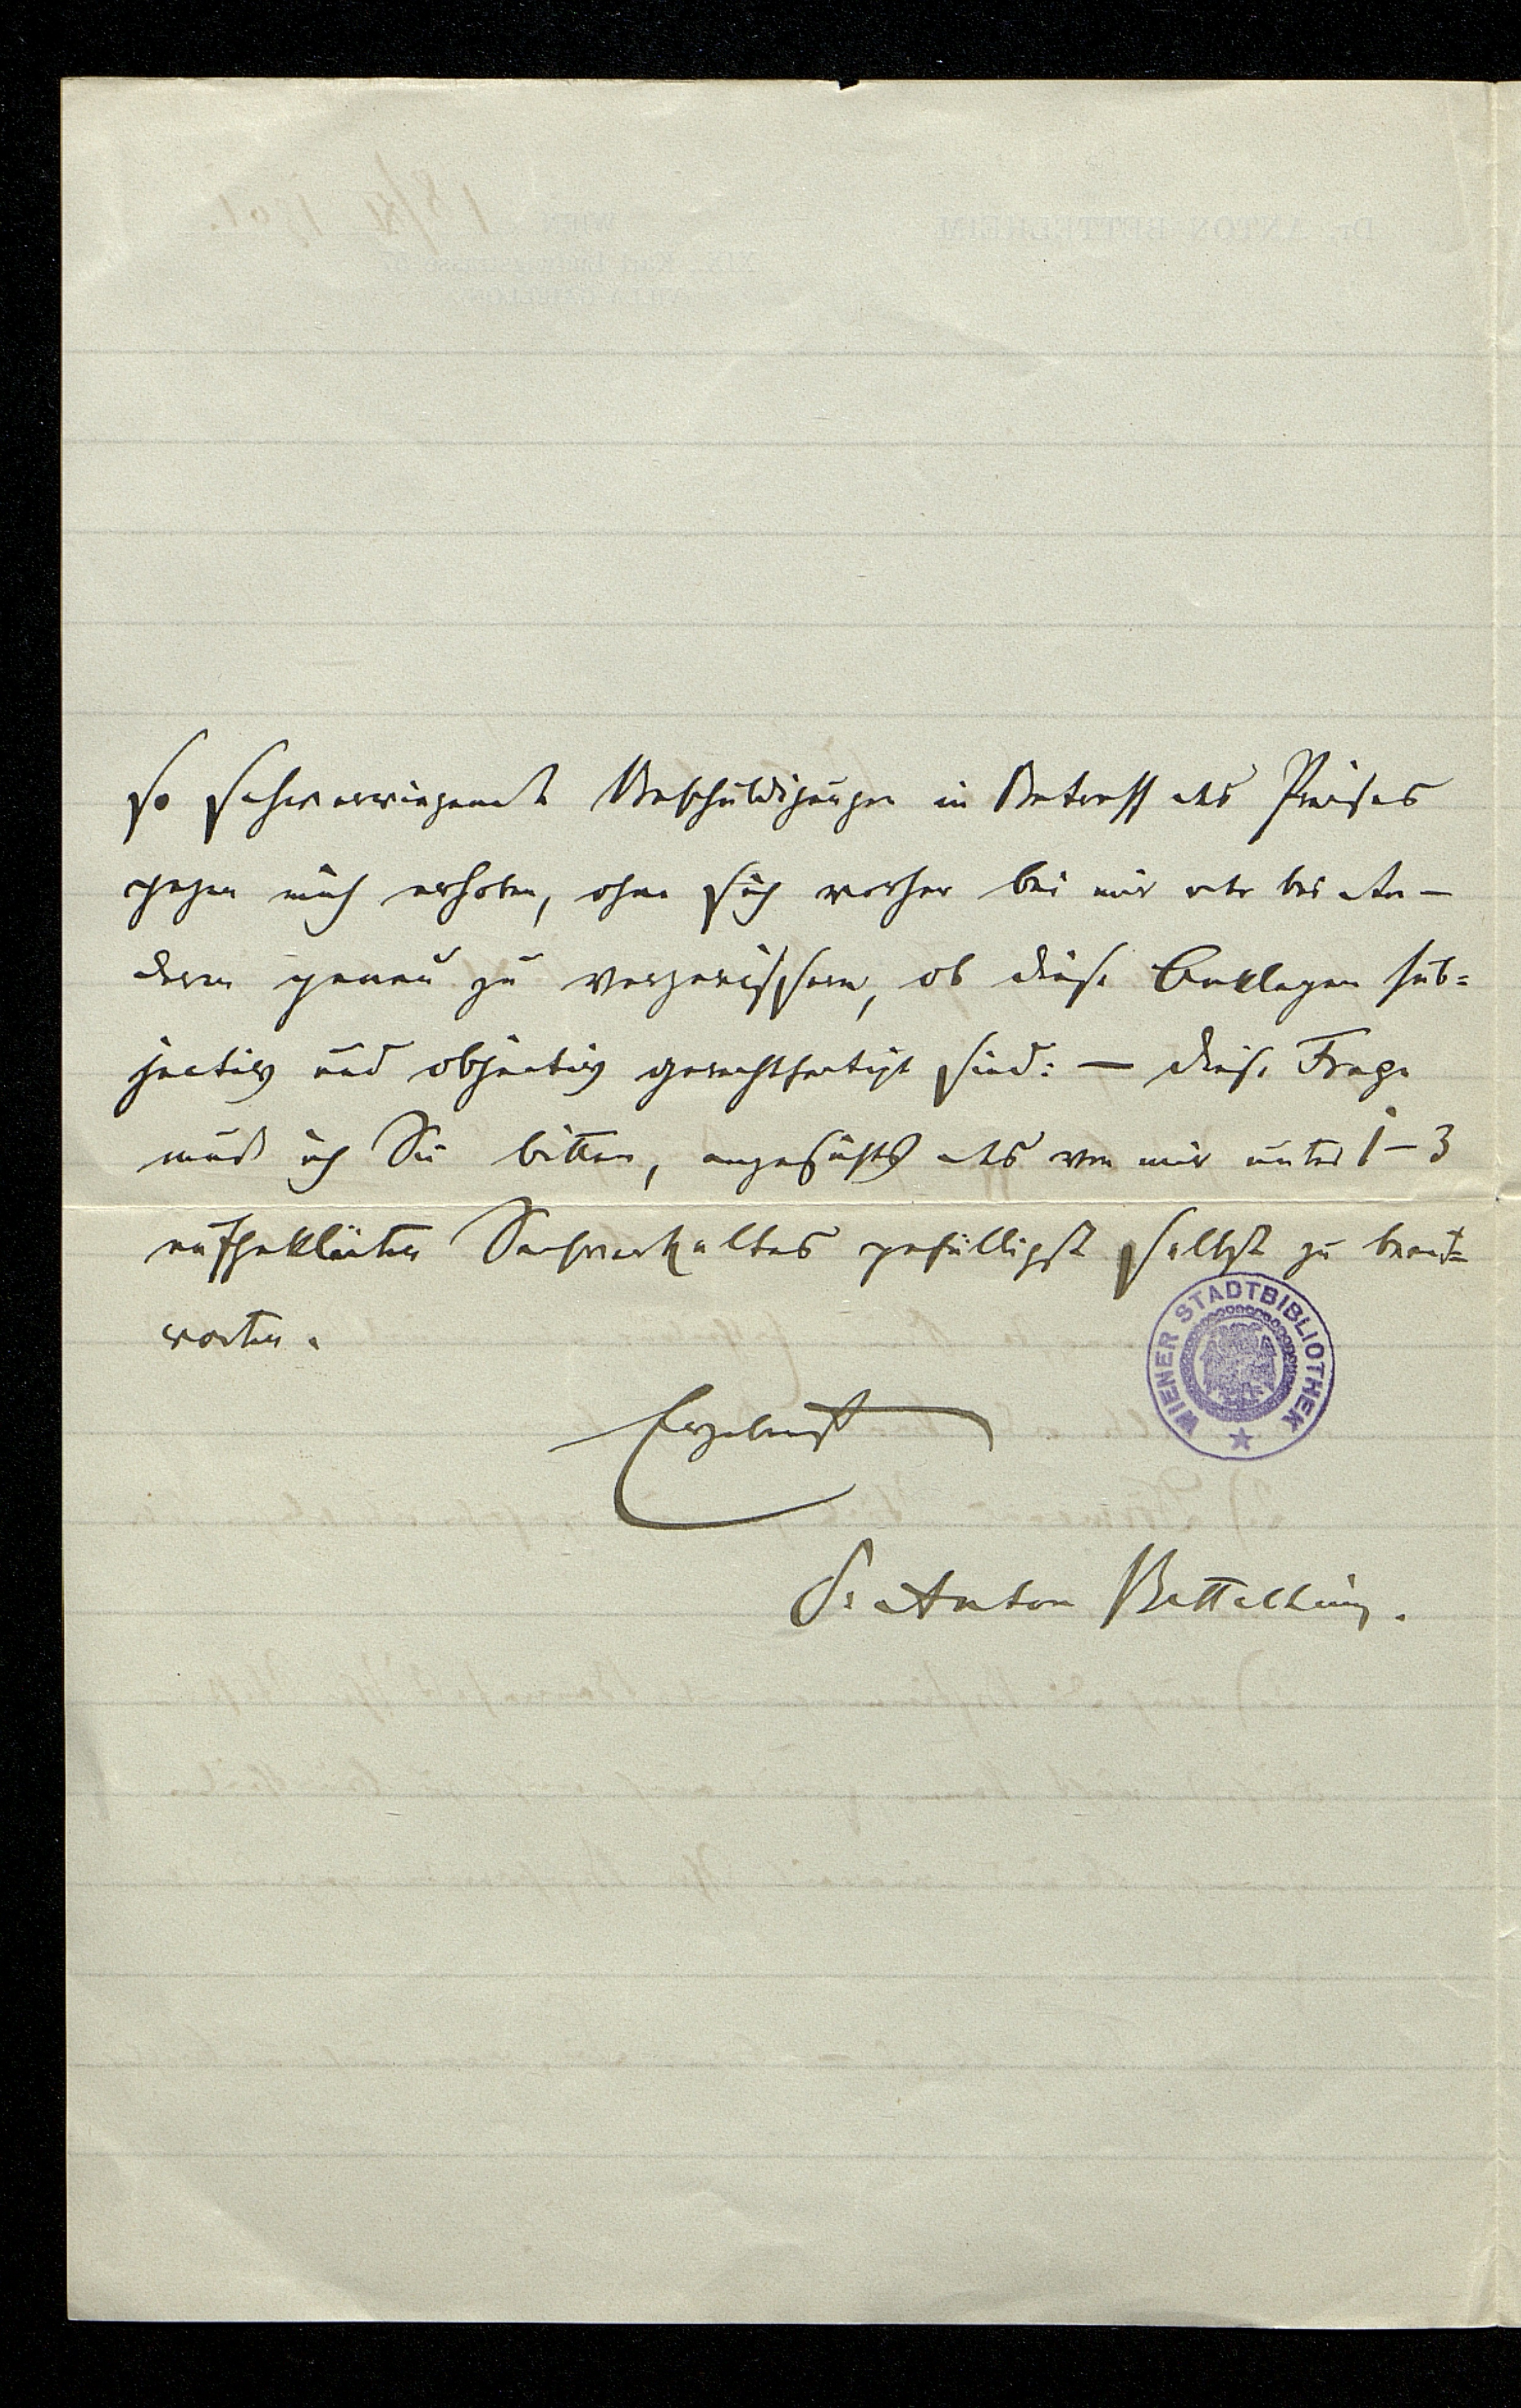 so schwerwiegende Beschuldigungen in Betreff des Preises
gegen mich erhoben, ohne sich vorher bei mir oder bei An-
deren genau zu vergewissern, ob diese Anklagen sub=
jectiv und objectiv gerechtfertigt sind: — diese Frage
muß ich Sie bitten, angesichts des von mir unter 1–3
aufgeklärten Sachverhaltes gefälligst selbst zu beant=
worten.
WIENER STADTBIBLIOTHEK
Ergebenst
Dr Anton Bettelheim.